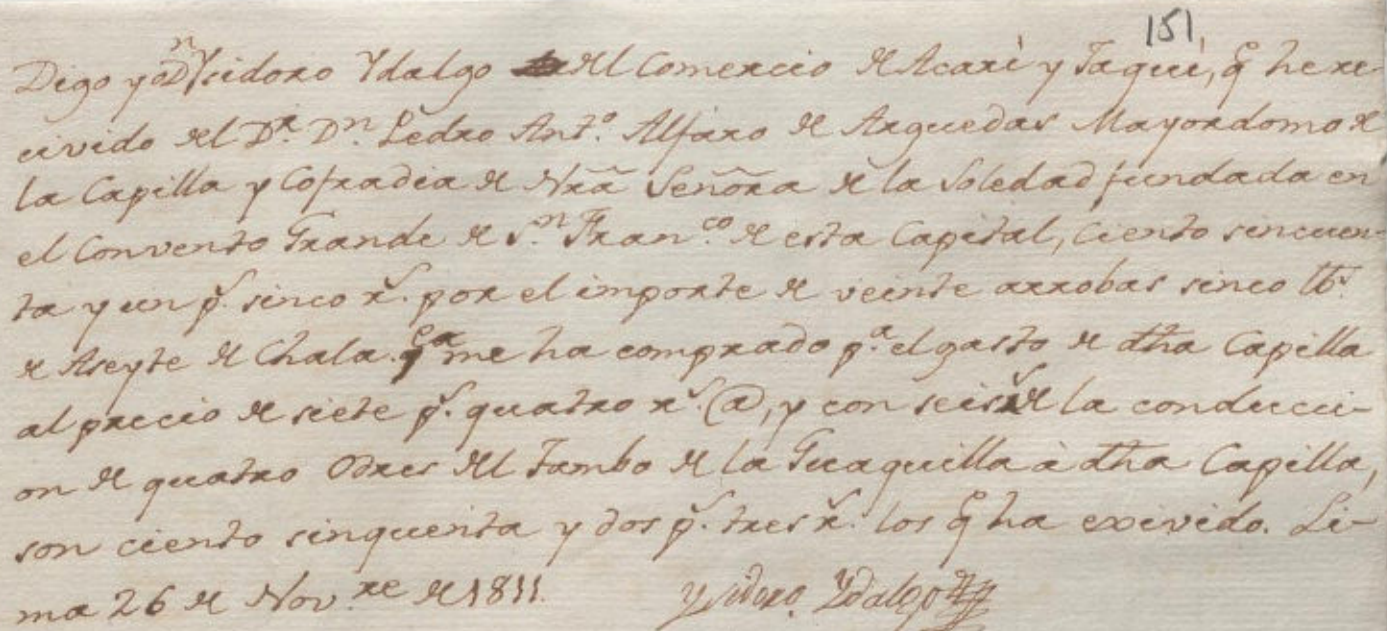 151
Digo yo Dn Ysidoro Ydalgo del Comercio de Acarì y Jaquí, q he re-
civido del Dr. Dn. Pedro Anto. Alfaro de Arguedas Mayordomo de
la Capilla y Cofradia de Nrã Señora de la Soledad fundada en
el Convento Grande de Sn. Franco. de esta Capital, ciento sincuen-
ta y un ps. sinco rs. por el importe de veinte arrobas sinco lbs.
de Aseyte de Chala. q me ha comprado pa. el gasto de dha Capilla
al precio de siete ps. quatro rs. @, y con seis rs de la conducci-
on de quatro Odres del Tambo de la Guaquilla à dha Capilla,
son ciento sinquenta y dos ps. tres rs. los q ha exivido. Li-
ma 26 de Novre. de 1811. Ysidoro Ydalgo